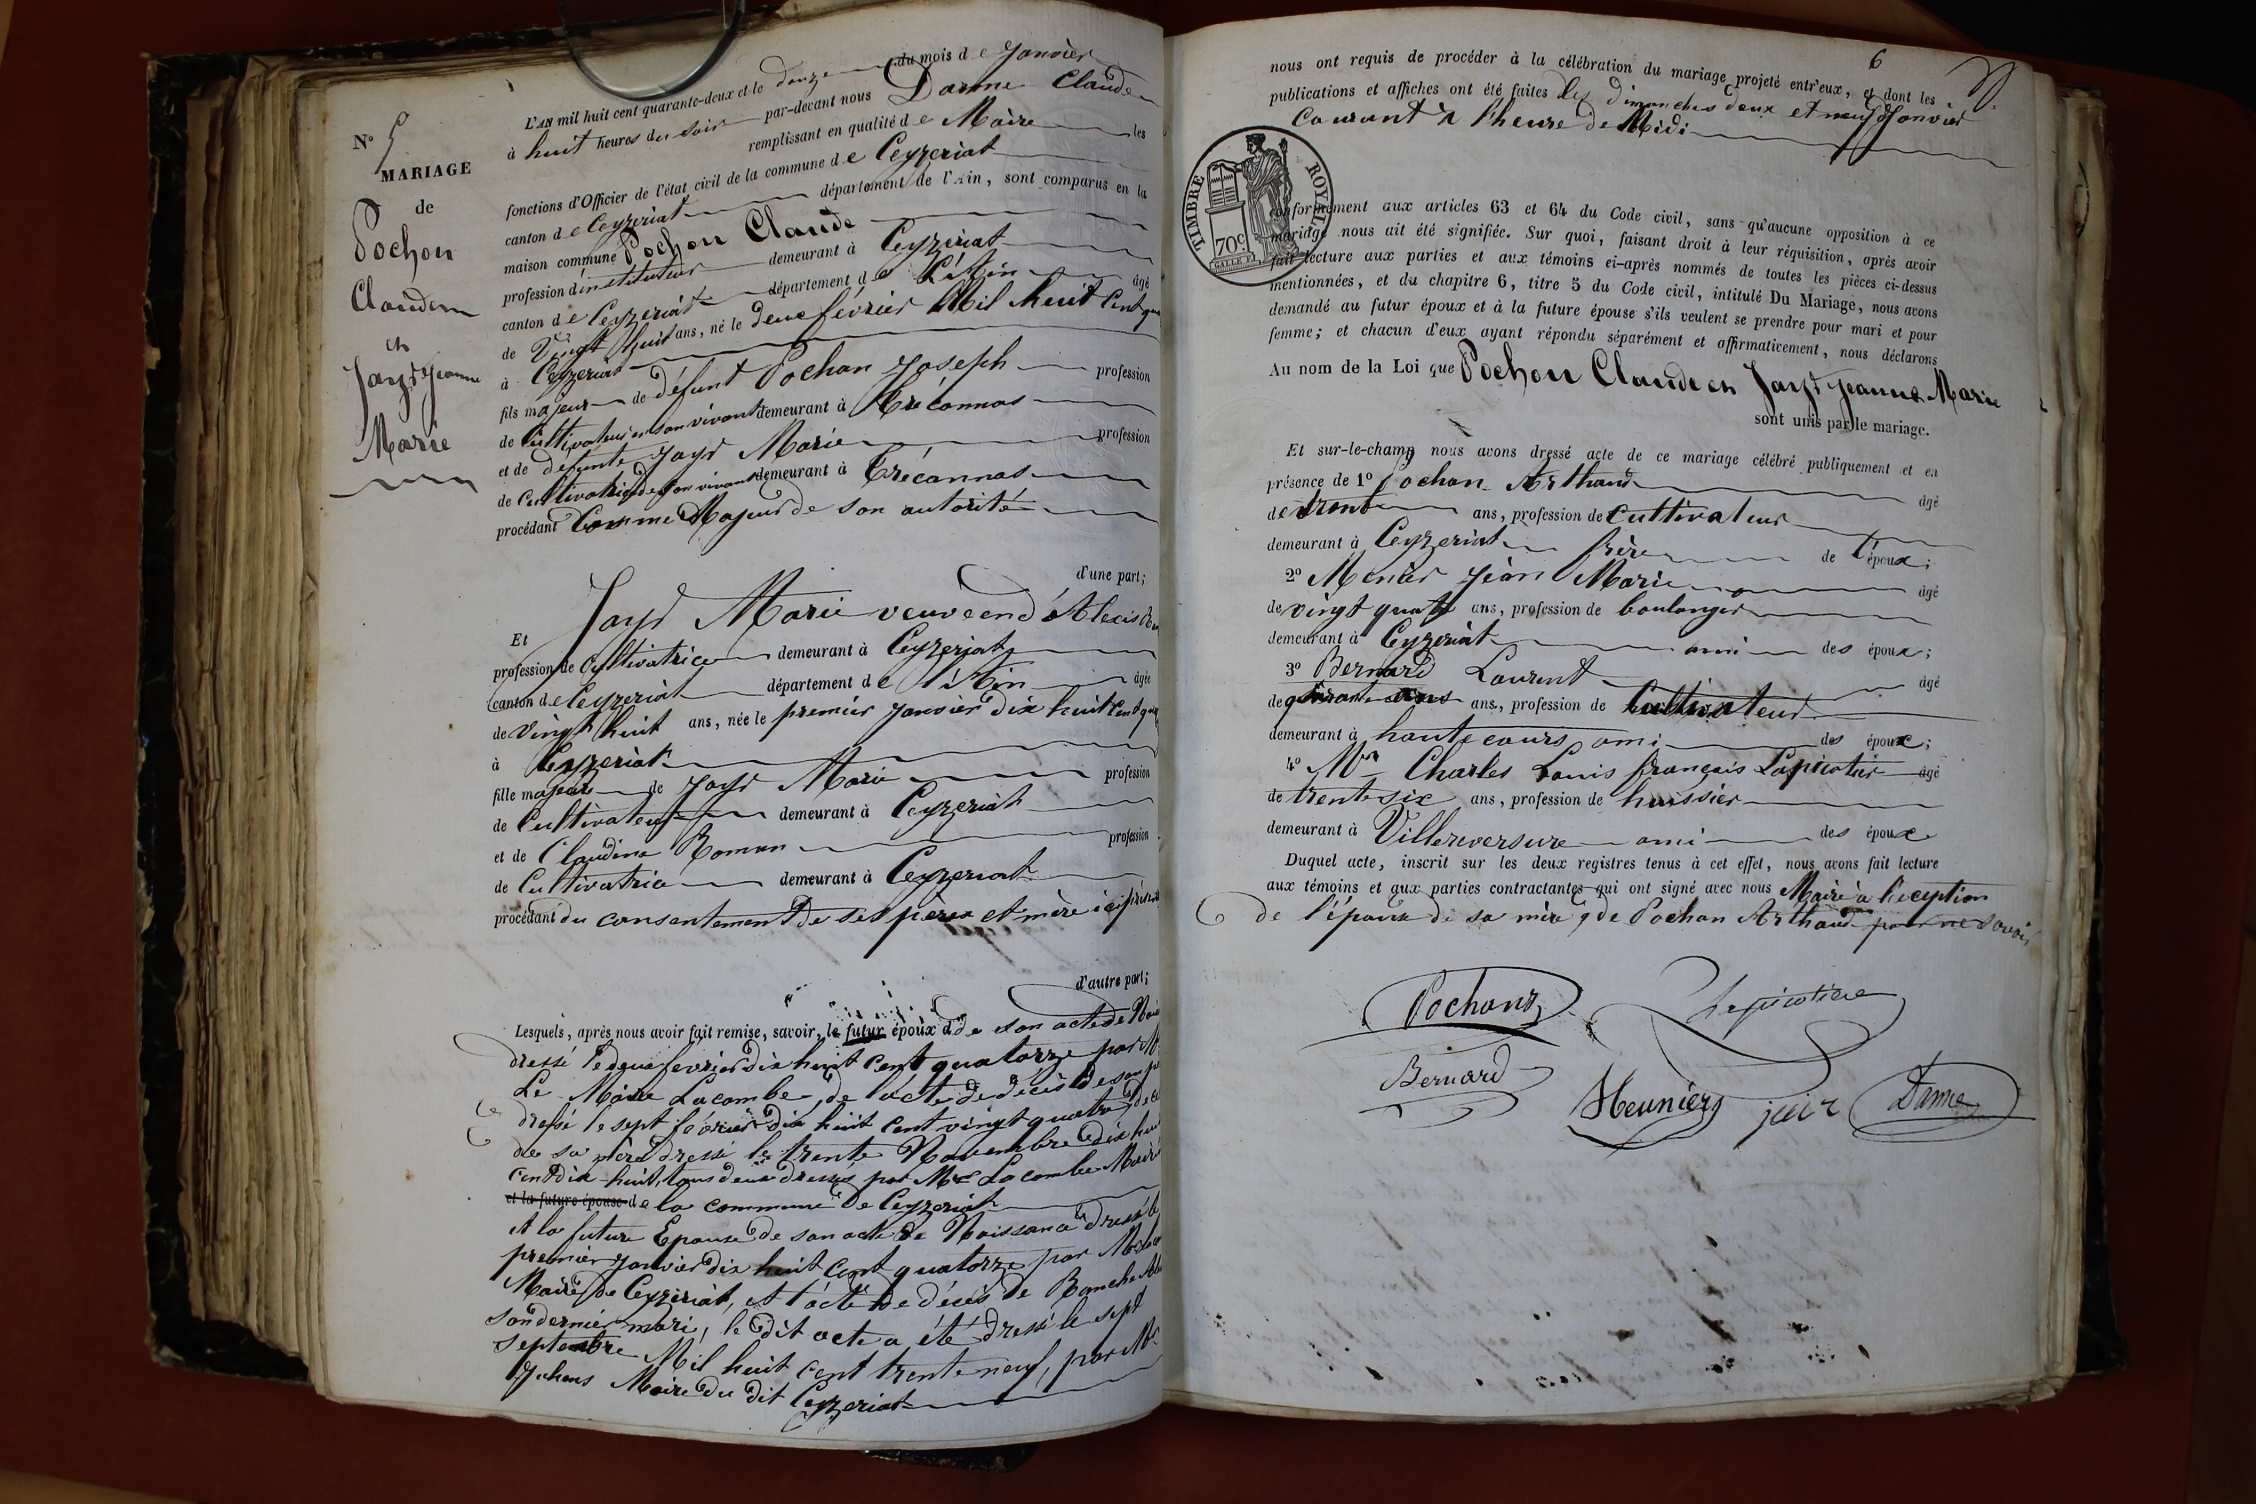 N° 5
MARIAGE
de
Pochon
Claude
et
Jayr Jeanne
Marie
L'AN mil huit cent quarante-deux et le douze du mois de Janvier
à huit heures du soir par-devant nous Darme Claude
remplissant en qualité de Maire les
fonctions d'Officier de l'état civil de la commune de Ceyzeriat
canton de Ceyzeriat département de l'Ain, sont comparus en la
maison commune Pochon Claude
profession d'instituteur demeurant à Ceyzeriat
canton de Ceyzeriat département de L'Ain âgé
de Vingt huit ans, né le deux février Mil huit Cent qua
à Ceyzeriat
fils majeur de défunt Pochon Joseph profession
de Cultivateur en son vivant demeurant à Tréconnas
et de défunte Jayr Marie profession
de Cultivatrice de son vivant demeurant à Tréconnas
procédant Comme Majeur de son autorité
d'une part;
Et Jayr Marie veuve en d'Alexis
profession de Cultivatrice demeurant à Ceyzeriat
canton de Ceyzeriat département de l'Ain âgée
de vingt huit ans, née le premier Janvier dix huit Cent qua
à Ceyzeriat
fille majeure de Jayr Marie profession
de Cultivateur demeurant à Ceyzeriat
et de Claudine Roman profession
de Cultivatrice demeurant à Ceyzeriat
procédant du consentement de ses père et mère ici présents
d'autre part;
Lesquels, après nous avoir fait remise, savoir, le futur époux de son acte de
dressé le deux fevrier dix huit cent quatorze par Mr
Le Maire Lacombe, de l'acte de décès de son
dressé le sept février dix huit cent vingt quatre de
de sa mère dressé le trente Novembre dix huit
cent dix-huit, tous deux dressés par Mr Lacombe Maire
et la future épouse de la commune de Ceyzeriat
et la future Epouse de son acte de Naissance dressé le
premier Janvier dix huit Cent quatorze par
Maire de Ceyzeriat, et l'acte de décès de
son dernier mari, le dit acte a été dressé le sept
septembre Mil huit cent trente neuf, par Mr
Maire du dit Ceyzeriat
6
nous ont requis de procéder à la célébration du mariage projeté entr'eux, et dont les
publications et affiches ont été faites les dimanches deux et neuf Janvier
Courant à l'heure de Midi
TIMBRE ROYAL
70c
conformément aux articles 63 et 64 du Code civil, sans qu'aucune opposition à ce
mariage nous ait été signifiée. Sur quoi, faisant droit à leur réquisition, après avoir
fait lecture aux parties et aux témoins ci-après nommés de toutes les pièces ci-dessus
mentionnées, et du chapitre 6, titre 5 du Code civil, intitulé Du Mariage, nous avons
demandé au futur époux et à la future épouse s'ils veulent se prendre pour mari et pour
femme; et chacun d'eux ayant répondu séparément et affirmativement, nous déclarons
Au nom de la Loi que Pochon Claude et Jayr Jeanne Marie
sont unis par le mariage.
Et sur-le-champ nous avons dressé acte de ce mariage célébré publiquement et en
présence de 1° Pochon Arthaud âgé
de trente ans, profession de Cultivateur
demeurant à Ceyzeriat frère de l'époux;
2° Menier Jean Marie âgé
de vingt quatre ans, profession de boulanger
demeurant à Ceyzeriat ami des époux;
3° Bernard Laurent âgé
de ans, profession de Cultivateur
demeurant à hautecours ami des époux;
4° Mr Charles Louis françois Lapicotier âgé
de trente six ans, profession de huissier
demeurant à Villereversure ami des époux
Duquel acte, inscrit sur les deux registres tenus à cet effet, nous avons fait lecture
aux témoins et aux parties contractantes qui ont signé avec nous Maire à l'éception
de l'épouse de sa mère, de Pochon Arthaud pour ne savoir
Pochon
Lapicotière
Bernard
Meunier
Darme